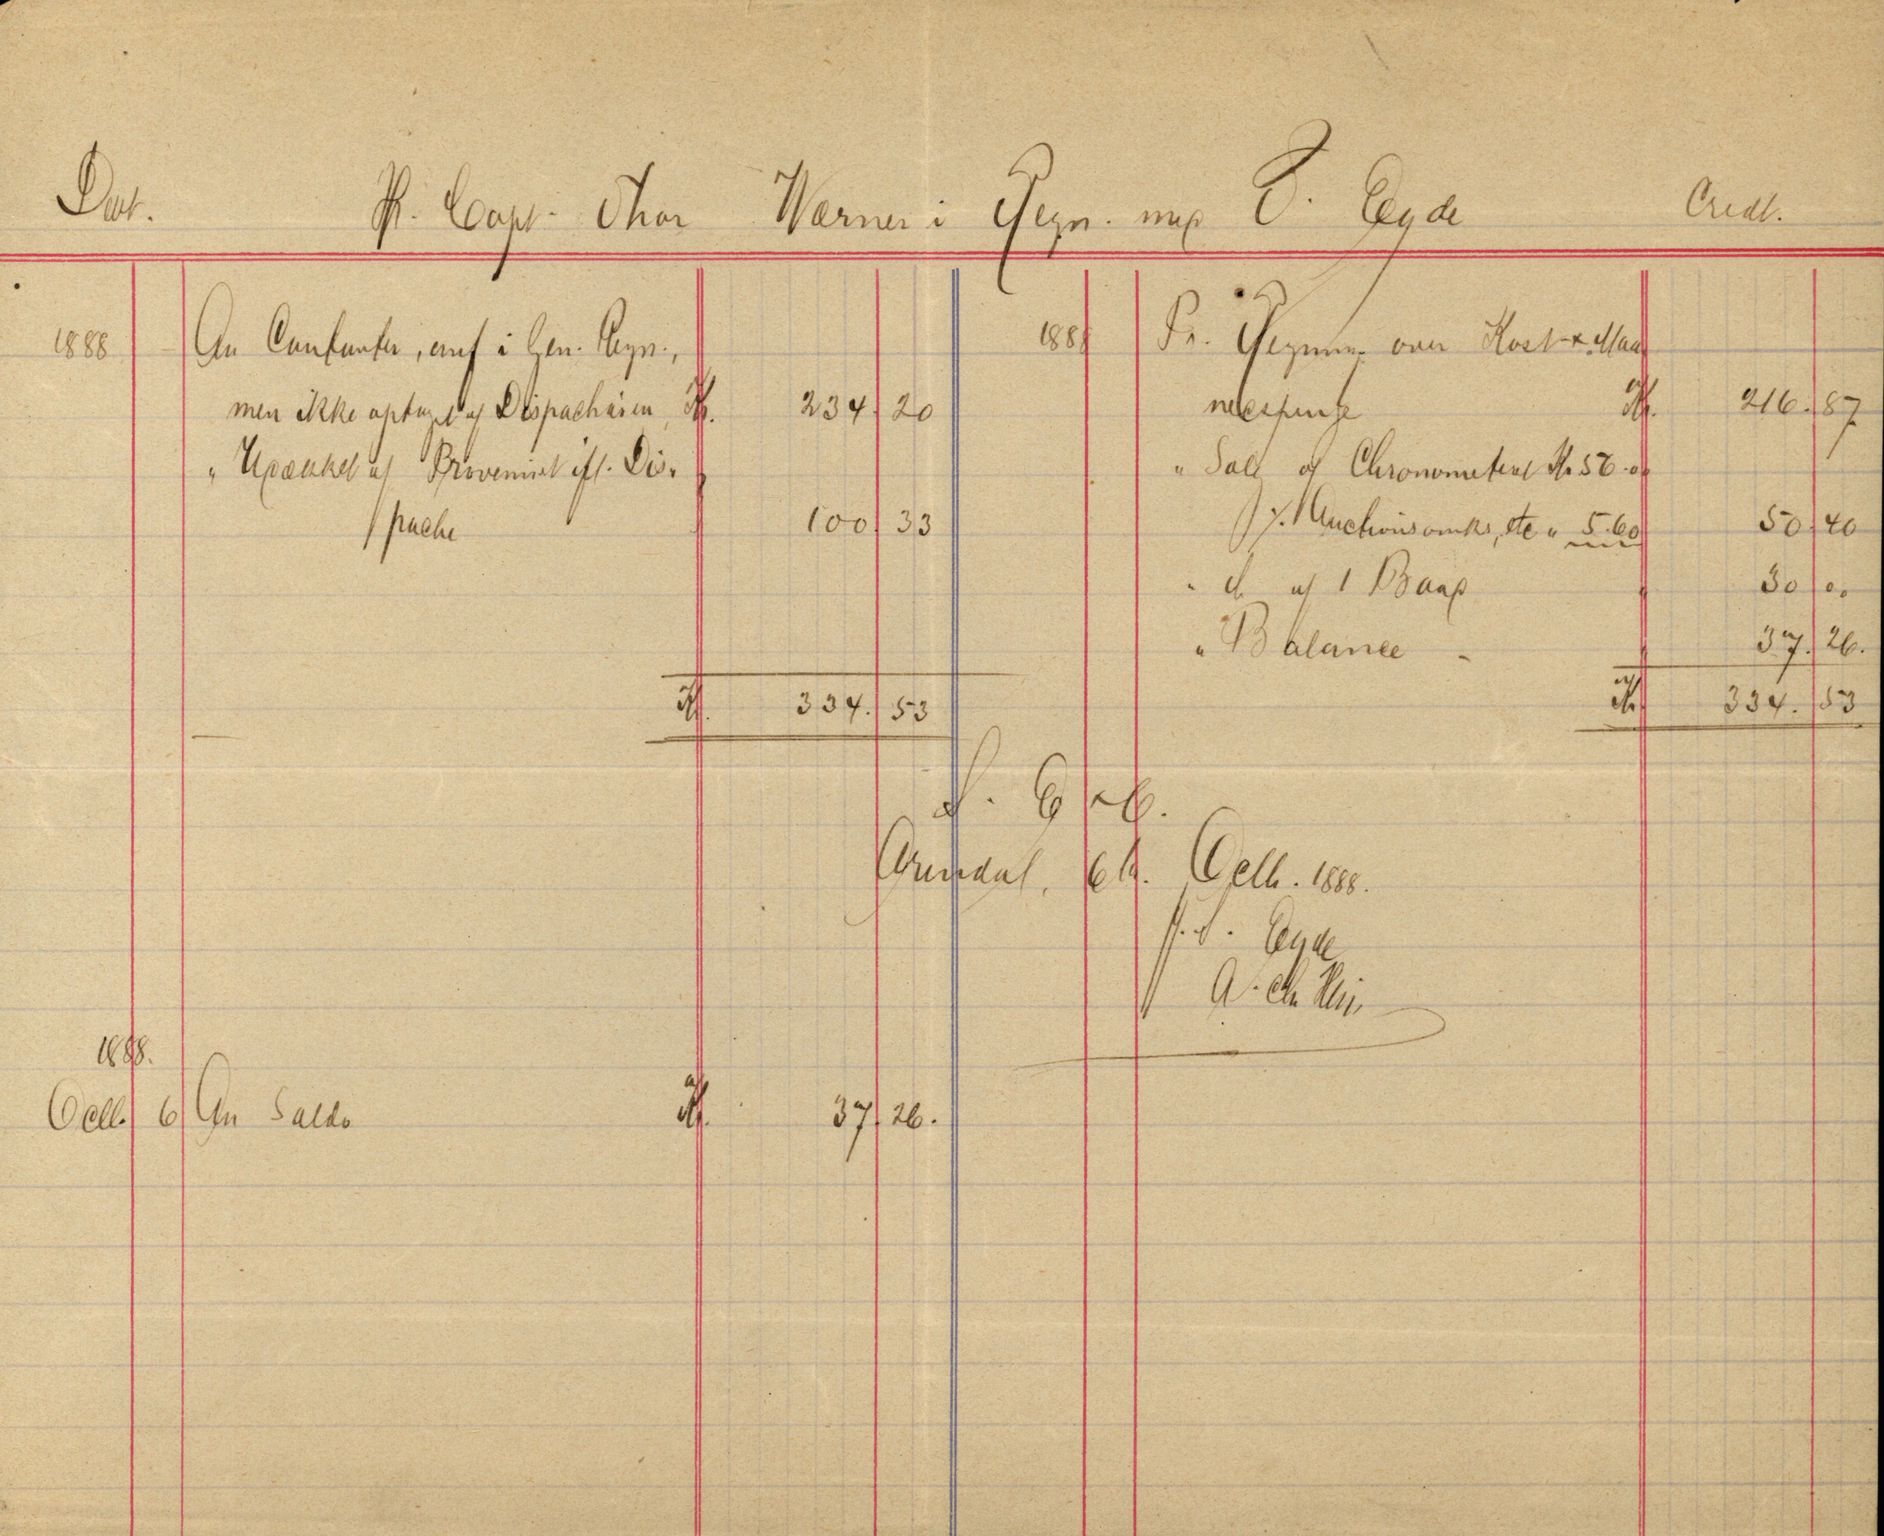 Debt. Hr. Capt. Thor Werner i Regn. med S. Eyde Credt.
1888 An Contanter, anf i Gen. Regn.,
men ikke optaget af Dispacheuren, Kr. 234. 20
" af Provenuet ifl. Dis-
pache 100. 33
Kr. 334. 53
1888 Pr. Regning over Kost & Maa
nedspenge Kr. 216. 87
" Salg af Chronometeret Kr. 56.00
% Auctionsomk., etc " 5.60 50. 40
" do af 1 Baad 30. 00
" Balance - 37. 26.
Kr. 334. 53
S. E & O.
Arendal, 6te Octb. 1888.
p. S. Eyde
A. Chr.
1888.
Octb. 6 An Saldo Kr. 37. 26.